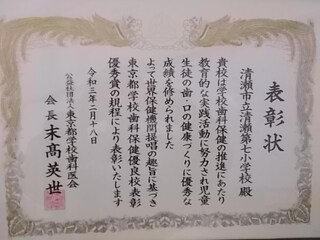 表彰状
清瀬市立清瀬第六小学校 殿
貴校は学校歯科保健の推進にあたり
教育的な実践活動に努力され児童
生徒の歯・口の健康づくりに優秀な
成績を修められました
よって世界保健機関提唱の趣旨に基づき
東京都学校歯科保健優良校表彰
優秀賞の規程により表彰いたします
令和三年二月十八日
公益社団法人 東京都学校歯科医会
会長 末髙英世